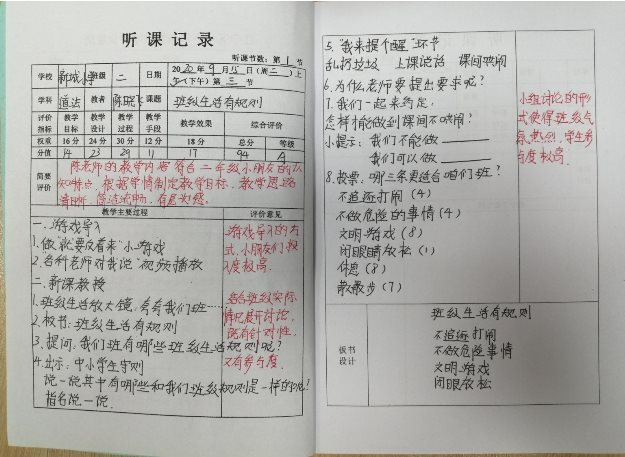 听课记录
听课节数：第 1 节
学校 新城小学 班级 二 日期 2020年9月15日(周二)上
午(下午)第三节
学科 道法 教者 陈晓飞 课题 班级生活有规则
评价指标 教学目标 教学设计 教学过程 教学手段 教学效果 综合评价
权重 16分 24分 30分 12分 18分 总分 等级
分值 14 23 29 11 17 94 A
简要评价
陈老师的教学内容符合二年级小朋友的认
知特点，根据学情制定教学目标，教学思路
清晰，简洁流畅，有层次感。
教学主要过程 评价意见
一、游戏导入
1.做“就要反着来”小游戏
2.各科老师对我说 视频播放
游戏导入的方
式，小朋友们投
入度极高。
二、新课教授
1.班级生活放大镜，会看我们班……
2.板书：班级生活有规则
3.提问：我们班有哪些班级生活规则呢？
4.出示：中小学生守则
说一说其中有哪些和我们班级规则是一样的呢？
指名说一说。
结合班级实际
情况展开讨论，
既有针对性，
又有参与度。
5.“我来提个醒”环节
乱扔垃圾 上课说话 课间哄闹
6.为什么老师要提出要求呢？
7.我们一起来约定：
怎样才能做到课间不哄闹？
小提示：我们不能做
我们可以做
8.投票：哪三条更适合咱们班？
不追逐打闹（4）
不做危险的事情（4）
文明游戏（8）
闭眼睛放松（1）
休息（8）
散散步（7）
小组讨论的形
式使得班级气
氛热烈，学生参
与度极高。
板书设计
班级生活有规则
不追逐打闹
不做危险事情
文明游戏
闭眼放松